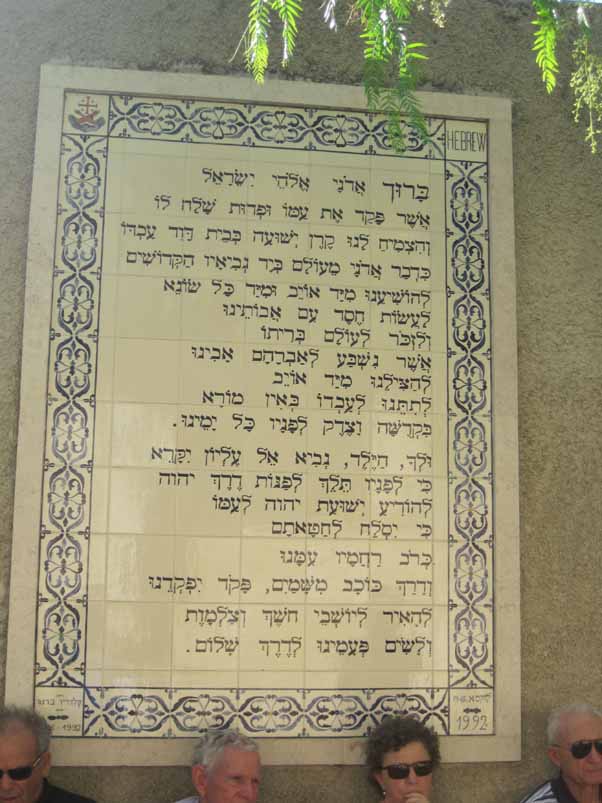 HEBREW
בָּרוּךְ אֲדֹנָי אֱלֹהֵי יִשְׂרָאֵל
אֲשֶׁר פָּקַד אֶת עַמּוֹ וּפְדוּת שָׁלַח לוֹ
וְהִצְמִיחַ לָנוּ קֶרֶן יְשׁוּעָה בְּבֵית דָּוִד עַבְדּוֹ
כִּדְבַר אֲדֹנָי מֵעוֹלָם בְּיַד נְבִיאָיו הַקְּדוֹשִׁים
לְהוֹשִׁיעֵנוּ מִיַּד אוֹיֵב וּמִיַּד כָּל שׂוֹנֵא
לַעֲשׂוֹת חֶסֶד עִם אֲבוֹתֵינוּ
וְלִזְכֹּר לְעוֹלָם בְּרִיתוֹ
אֲשֶׁר נִשְׁבַּע לְאַבְרָהָם אָבִינוּ
לְהַצִּילֵנוּ מִיַּד אוֹיֵב
לְתִתֵּנוּ לְעָבְדוֹ בְּאֵין מוֹרָא
בִּקְדֻשָּׁה וָצֶדֶק לְפָנָיו כָּל יָמֵינוּ.
וּלְךָ, הַיֶּלֶד, נְבִיא אֵל עֶלְיוֹן יִקָּרֵא
כִּי לְפָנָיו תֵּלֵךְ לְפַנּוֹת דֶּרֶךְ יהוה
לְהוֹדִיעַ יְשׁוּעַת יהוה לְעַמּוֹ
כִּי יִסְלַח לְחַטָּאתָם
כְּרֹב רַחֲמָיו עִמָּנוּ
וְדָרַךְ כּוֹכָב מִשָּׁמַיִם, פָּקֹד יִפְקְדֵנוּ
לְהָאִיר לְיוֹשְׁבֵי חֹשֶׁךְ וְצַלְמָוֶת
וְלָשִׂים פְּעָמֵינוּ לְדֶרֶךְ שָׁלוֹם.
1992
1992